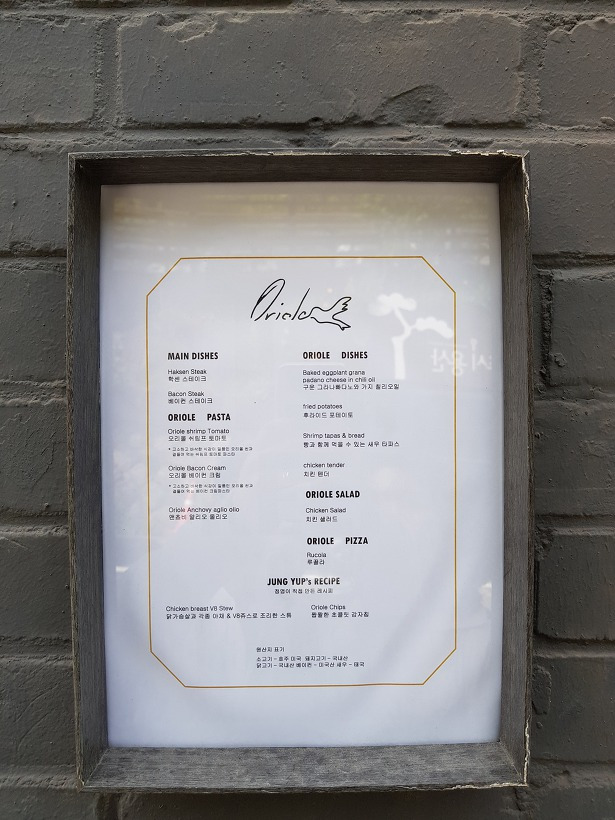 Oriole
MAIN DISHES
Haksen Steak
학센 스테이크
Bacon Steak
베이컨 스테이크
ORIOLE PASTA
Oriole shrimp Tomato
오리올 쉬림프 토마토
Oriole Bacon Cream
오리올 베이컨 크림
Oriole Anchovy aglio olio
앤쵸비 알리오 올리오
ORIOLE DISHES
Baked eggplant grana
padano cheese in chili oil
구운 그라나빠다노와 가지 칠리오일
fried potatoes
후라이드 포테이토
Shrimp tapas & bread
빵과 함께 먹을 수 있는 새우 타파스
chicken tender
치킨 텐더
ORIOLE SALAD
Chicken Salad
치킨 샐러드
ORIOLE PIZZA
Rucola
루꼴라
JUNG YUP's RECIPE
정엽이 직접 만든 레시피
Chicken breast V8 Stew
닭가슴살과 각종 야채 & V8쥬스로 조리한 스튜
Oriole Chips
짭짤한 초콜릿 감자칩
원산지 표기
소고기 - 호주 미국 돼지고기 - 국내산
닭고기 - 국내산 베이컨 - 미국산 새우 - 태국